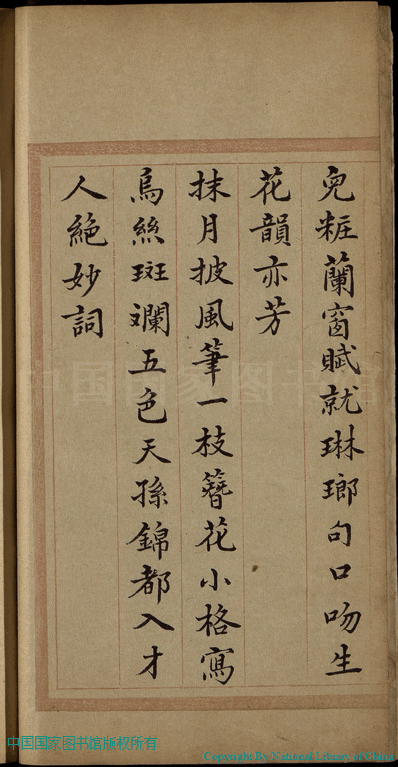 兒粧蘭窗賦就琳瑯句口吻生
花韻亦芳
抹月披風筆一枝簪花小格寫
烏絲斑斕五色天孫錦都入才
人絕妙詞
中国国家图书馆
中国国家图书馆版权所有
Copyright By National Library of China